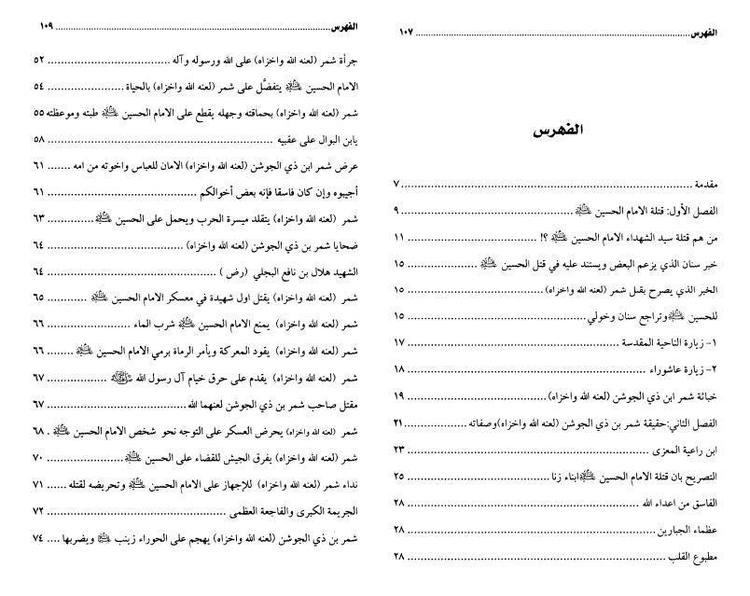 الفهرس ........................ ١٠٧
الفهرس
مقدمة ........................ ٧
الفصل الأول: قتلة الامام الحسين ﵇ ........................ ٩
من هم قتلة سيد الشهداء الامام الحسين ﵇ ؟! ........................ ١١
خبر سنان الذي يزعم البعض ويستند عليه في قتل الحسين ﵇ ........................ ١٥
الخبر الذي يصرح بقبل شمر (لعنه الله واخزاه) ........................ ١٥
للحسين ﵇ وتراجع سنان وخولي ........................ ١٥
١- زيارة الناحية المقدسة ........................ ١٧
٢- زيارة عاشوراء ........................ ١٨
خباثة شمر ابن ذي الجوشن (لعنه الله واخزاه) ........................ ١٩
الفصل الثاني:حقيقة شمر بن ذي الجوشن (لعنه الله واخزاه)وصفاته ........................ ٢١
ابن راعية المعزى ........................ ٢٣
التصريح بان قتلة الامام الحسين ﵇ ابناء زنا ........................ ٢٥
الفاسق من اعداء الله ........................ ٢٨
عظماء الجبارين ........................ ٢٨
مطبوع القلب ........................ ٢٨
الفهرس ........................ ١٠٩
جرأة شمر (لعنه الله واخزاه) على الله ورسوله وآله ........................ ٥٢
الامام الحسين ﵇ يتفضَّل على شمر (لعنه الله واخزاه) بالحياة ........................ ٥٤
شمر (لعنه الله واخزاه) بحماقته وجهله يقطع على الامام الحسين ﵇ طبته وموعظته ٥٥
يابن البوال على عقبيه ........................ ٥٨
عرض شمر ابن ذي الجوشن (لعنه الله واخزاه) الامان للعباس واخوته من امه ....... ٦١
أجيبوه وإن كان فاسقا فإنه بعض أخوالكم ........................ ٦١
شمر (لعنه الله واخزاه) يتقلد ميسرة الحرب ويحمل على الحسين ﵇ ............. ٦٣
ضحايا شمر بن ذي الجوشن (لعنه الله واخزاه) ........................ ٦٤
الشهيد هلال بن نافع البجلي (رض ) ........................ ٦٤
شمر (لعنه الله واخزاه) يقتل اول شهيدة في معسكر الامام الحسين ﵇ .......... ٦٥
شمر (لعنه الله واخزاه) يمنع الامام الحسين ﵇ شرب الماء ........................ ٦٦
شمر (لعنه الله واخزاه) يقود المعركة ويأمر الرماة برمي الامام الحسين ﵇ ......... ٦٦
شمر (لعنه الله واخزاه) يقدم على حرق خيام آل رسول الله ﷺ ................... ٦٧
مقتل صاحب شمر بن ذي الجوشن لعنهما الله ........................ ٦٧
شمر (لعنه الله واخزاه) يحرض العسكر على التوجه نحو شخص الامام الحسين ﵇ . ٦٨
شمر (لعنه الله واخزاه) يفرق الجيش للقضاء على الحسين ﵇ ........................ ٧٠
نداء شمر (لعنه الله واخزاه) للإجهاز على الامام الحسين ﵇ وتحريضه لقتله ...... ٧١
الجريمة الكبرى والفاجعة العظمى ........................ ٧٢
شمر بن ذي الجوشن (لعنه الله واخزاه) يهجم على الحوراء زينب ﵍ ويضربها .... ٧٤